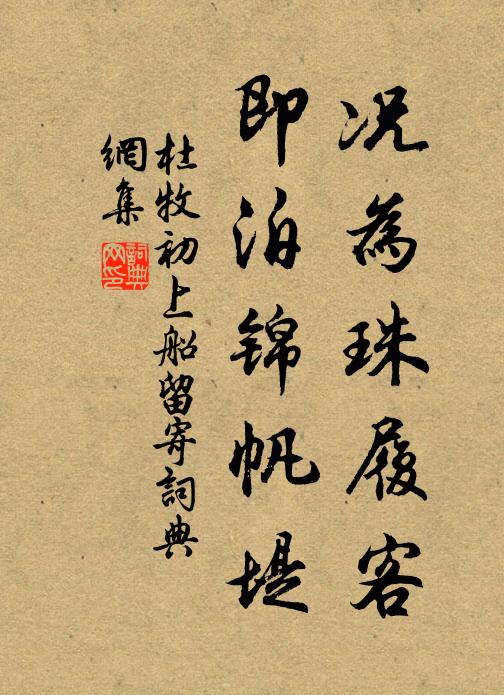 况為珠履客
即泊锦帆堤
杜牧初上船留寄詞典
網集
詞典
网印